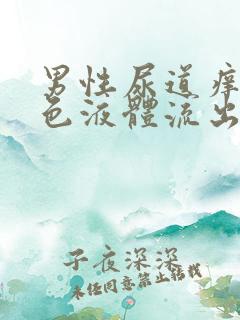 男性尿道癢
色液體流出
子夜深深
未任同意禁止轉載